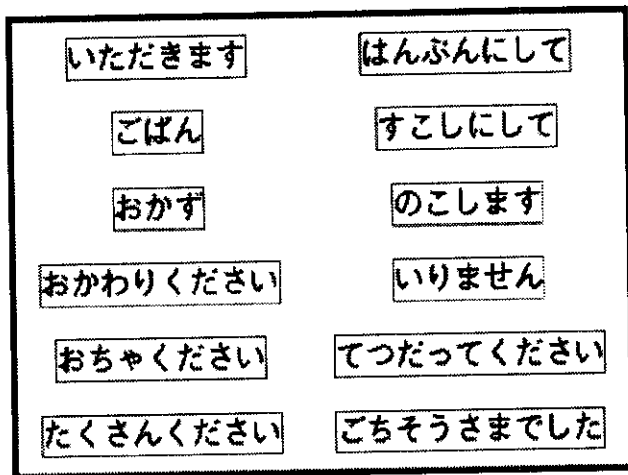 いただきます
ごはん
おかず
おかわりください
おちゃください
たくさんください
はんぶんにして
すこしにして
のこします
いりません
てつだってください
ごちそうさまでした